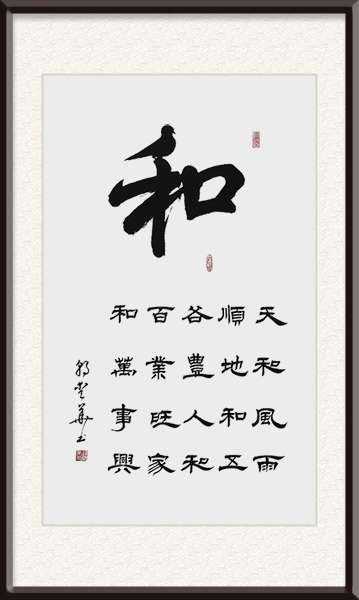 和
天和風雨
順地和五
谷豊人和
百業旺家
和萬事興